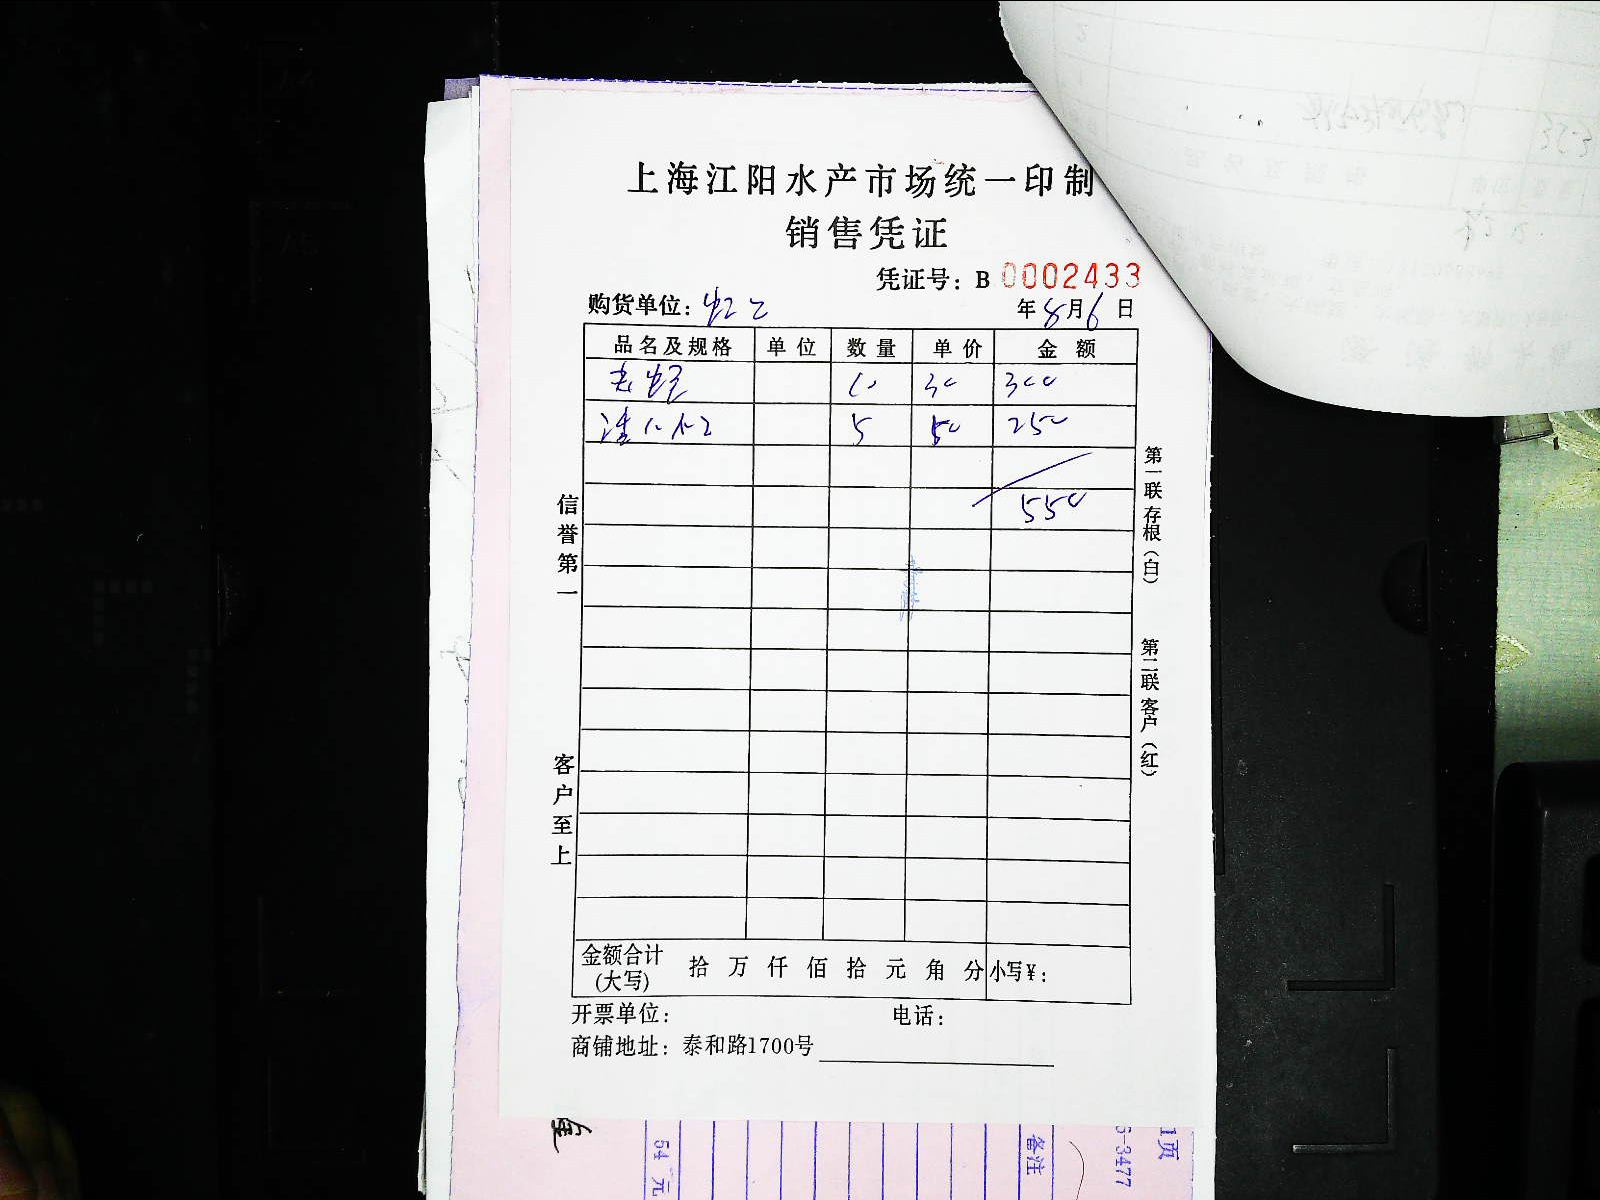 上海江阳水产市场统一印制
销售凭证
凭证号：B 0002433
购货单位：
年8月6日
品名及规格 单位 数量 单价 金额
10 30 300
5 50 250
550
信誉第一
客户至上
第一联 存根（白）
第二联 客户（红）
金额合计（大写） 拾 万 仟 佰 拾 元 角 分 小写¥：
开票单位： 电话：
商铺地址：泰和路1700号
54 元
备注
5-3477
1页